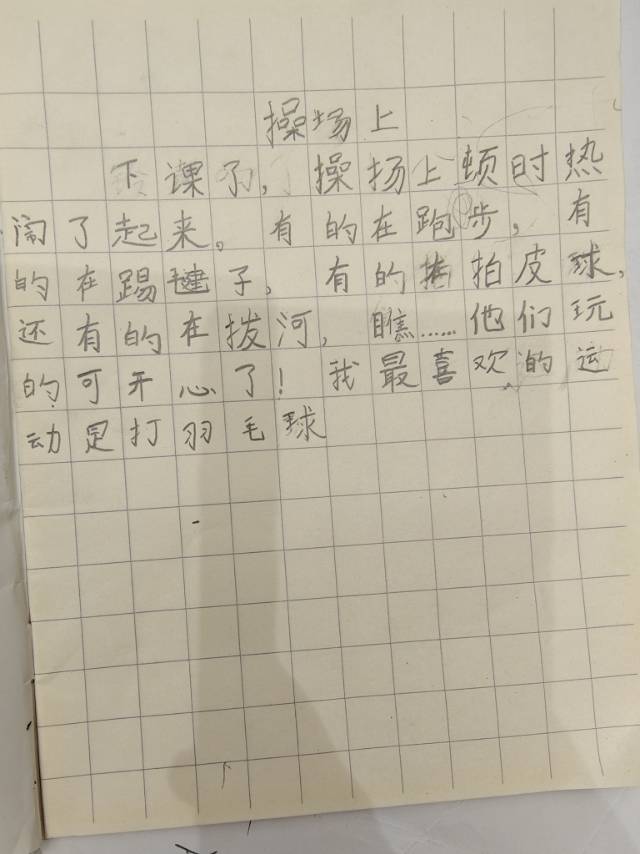 操场上
下课了，操场上顿时热
闹了起来。有的在跑步，有
的在踢毽子，有的在拍皮球，
还有的在拨河，瞧……他们玩
的可开心了！我最喜欢的运
动是打羽毛球